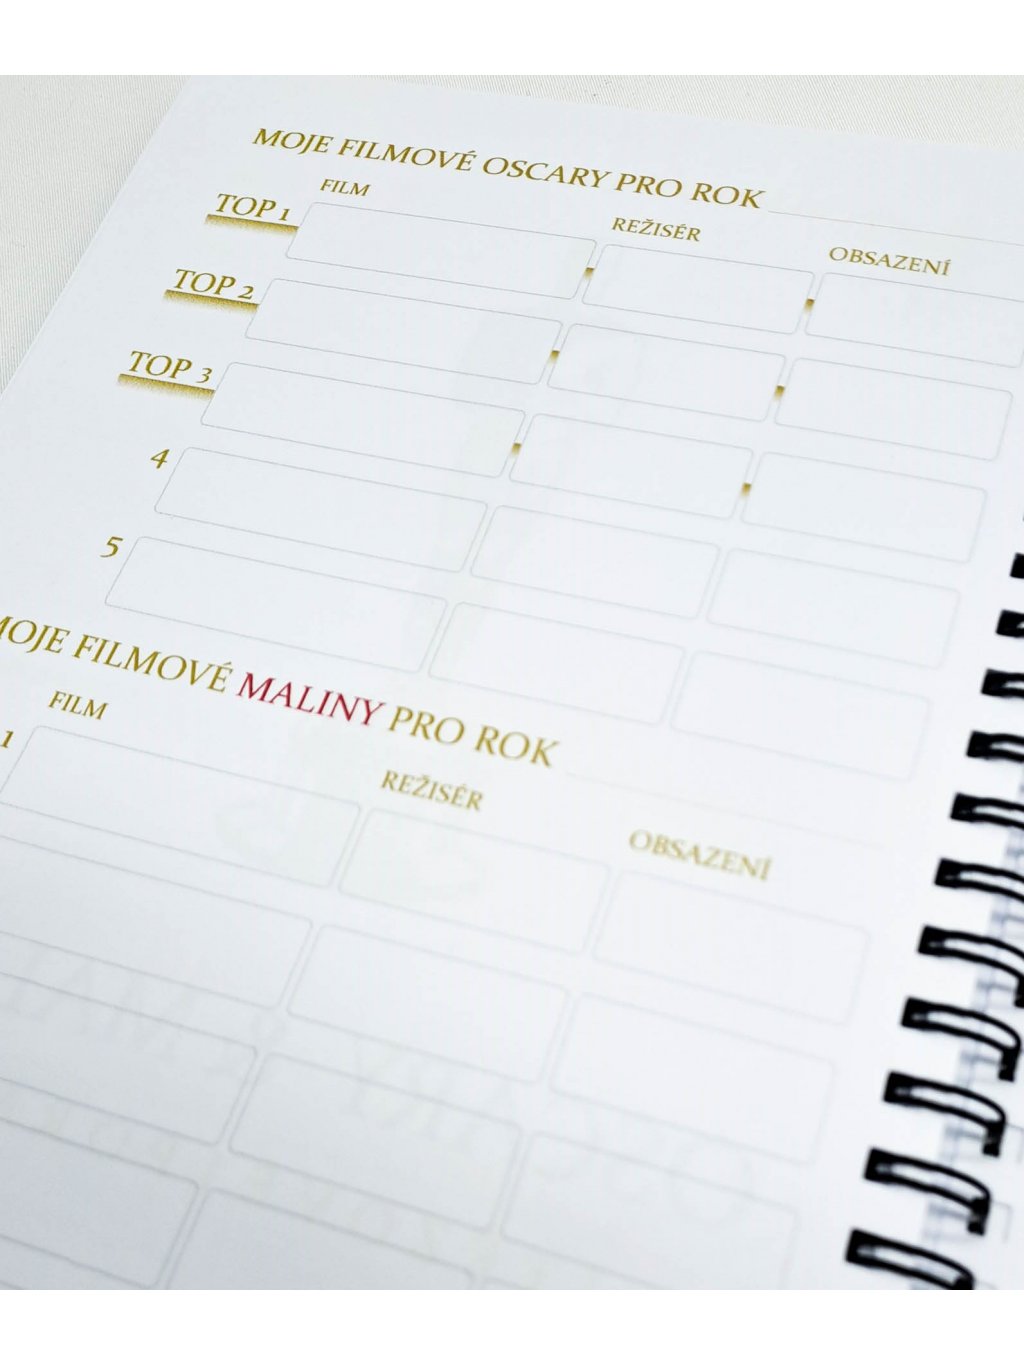 MOJE FILMOVÉ OSCARY PRO ROK
FILM REŽISÉR OBSAZENÍ
TOP 1
TOP 2
TOP 3
4
5
MOJE FILMOVÉ MALINY PRO ROK
FILM REŽISÉR OBSAZENÍ
1